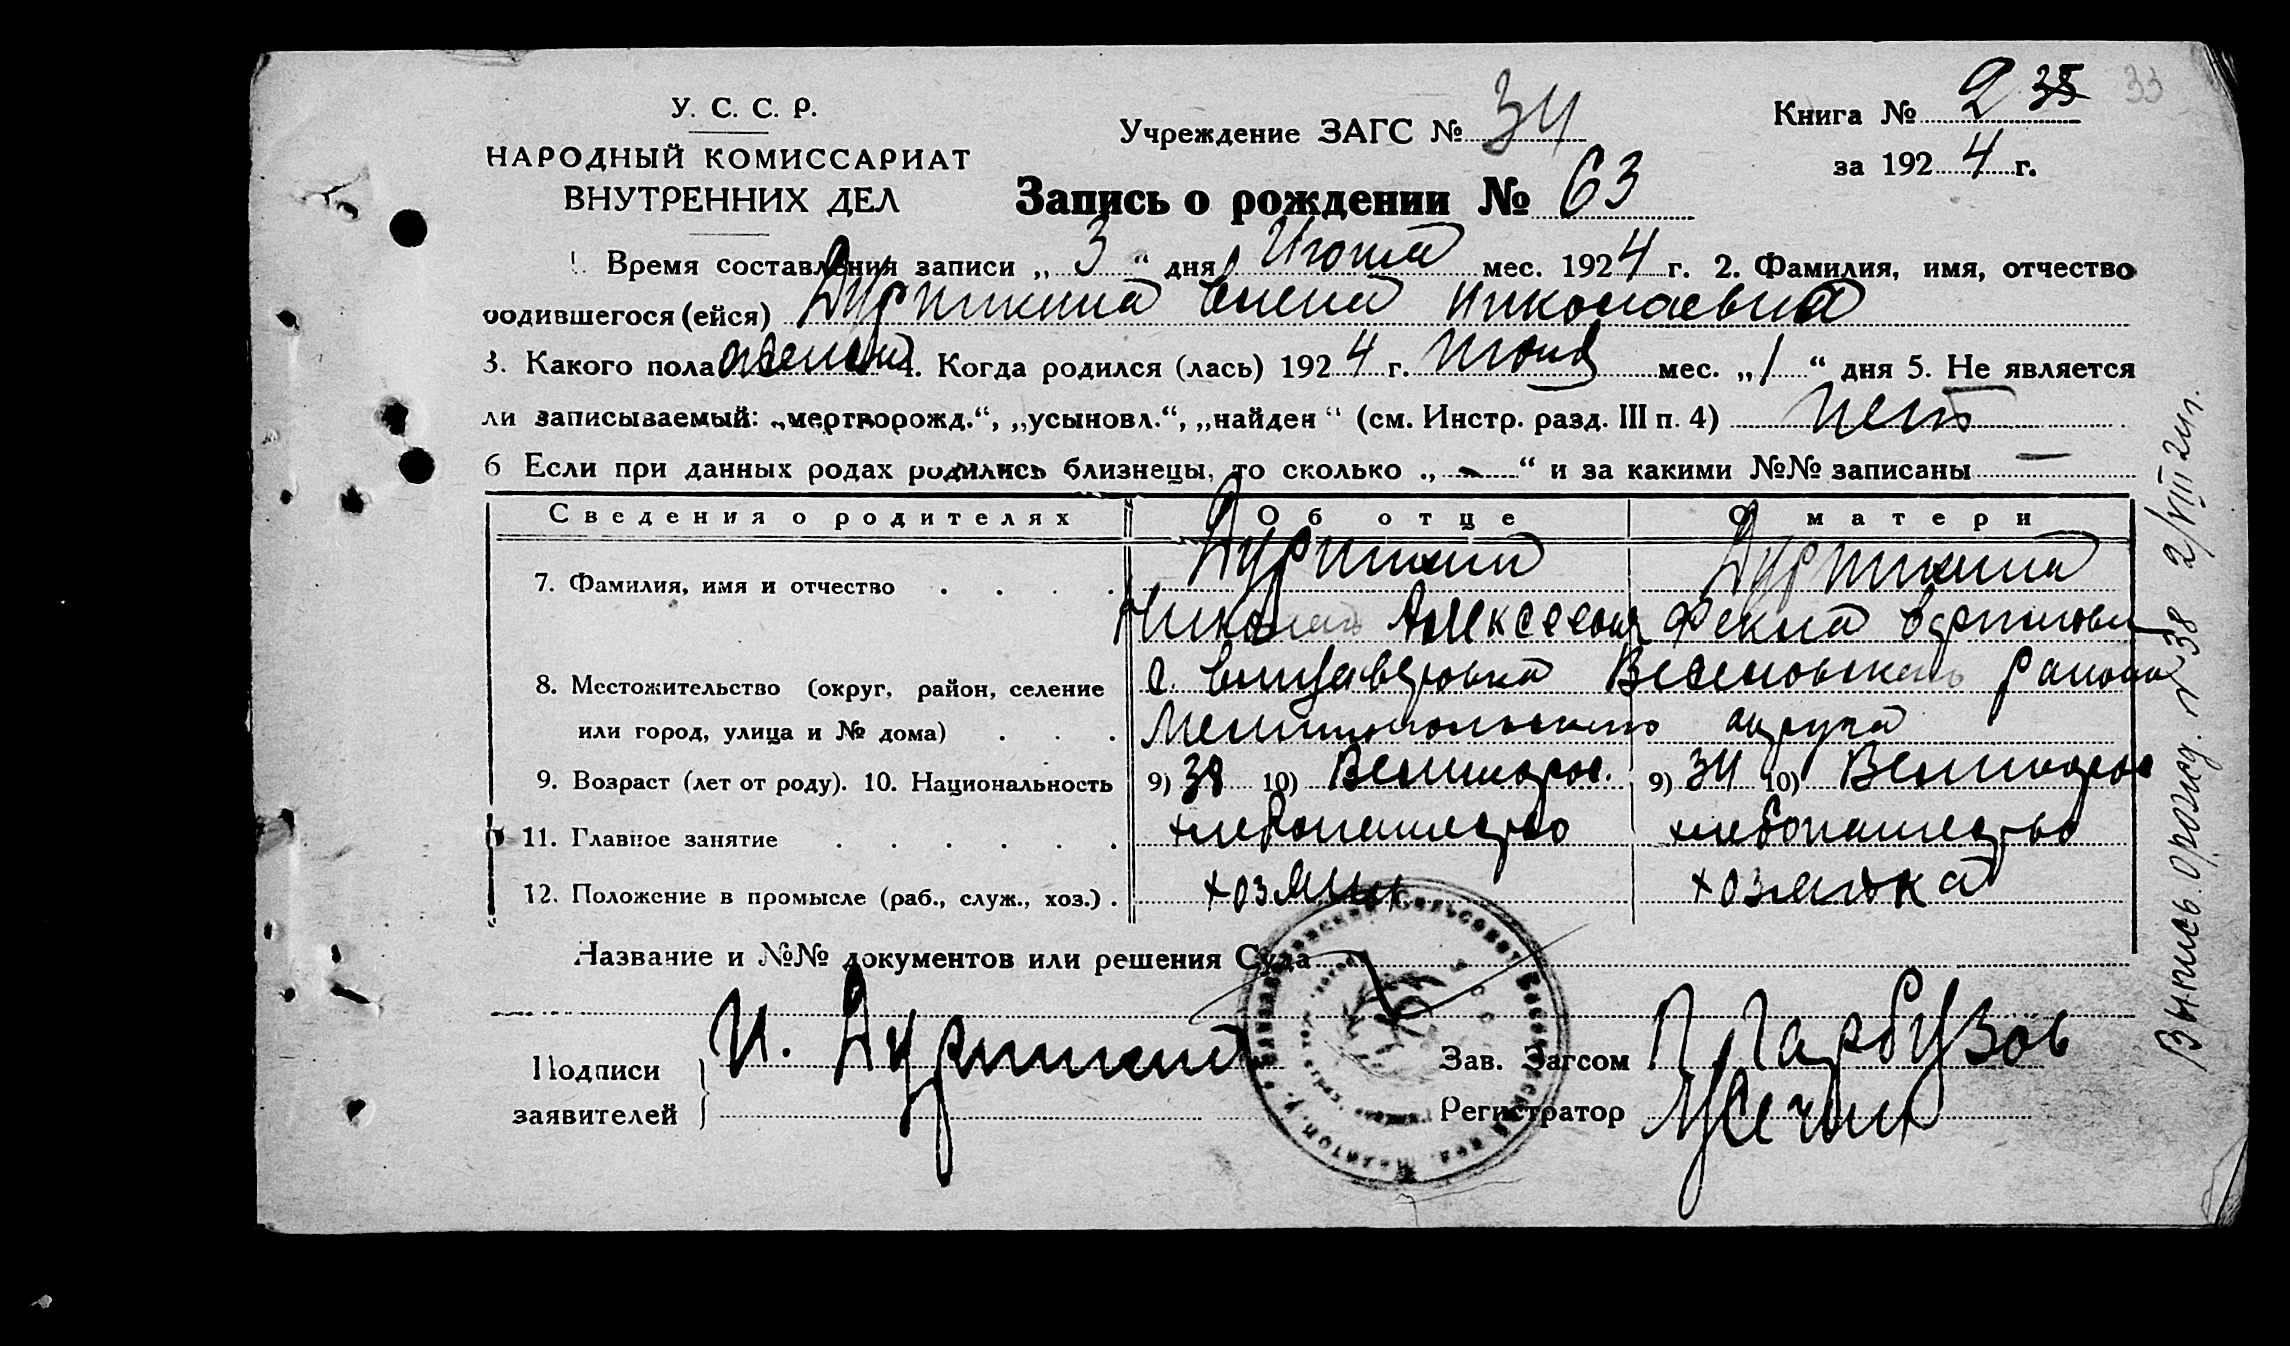 У. С. С. Р.
НАРОДНЫЙ КОМИССАРИАТ
ВНУТРЕННИХ ДЕЛ
Учреждение ЗАГС № 34
Книга № 2 35 33
за 1924 г.
Запись о рождении № 63
1. Время составления записи „ 3 “ дня Июля мес. 1924 г. 2. Фамилия, имя, отчество
родившегося (ейся) Елена Николаевна
3. Какого пола женск 4. Когда родился (лась) 1924 г. мес. „ 1 “ дня 5. Не является
ли записываемый: „мертворожд.“, „усыновл.“, „найден“ (см. Инстр. разд. III п. 4) нет
6 Если при данных родах родились близнецы, то сколько „ — “ и за какими №№ записаны —
Сведения о родителях Об отце О матери
7. Фамилия, имя и отчество
Николай Алексеевич Фекла
8. Местожительство (округ, район, селение с. Елизаветовка Веселовского района
или город, улица и № дома) Мелитопольского округа
9. Возраст (лет от роду). 10. Национальность 9) 38 10) Великорос. 9) 34 10) Великорос
11. Главное занятие хлебопашество хлебопашество
12. Положение в промысле (раб., служ., хоз.) хозяин хозяйка
Название и №№ документов или решения Суда
Подписи
заявителей
Зав. Загсом П. Гарбузов
Регистратор
Выпись о рожд. № 38 2/VIII 24 г.